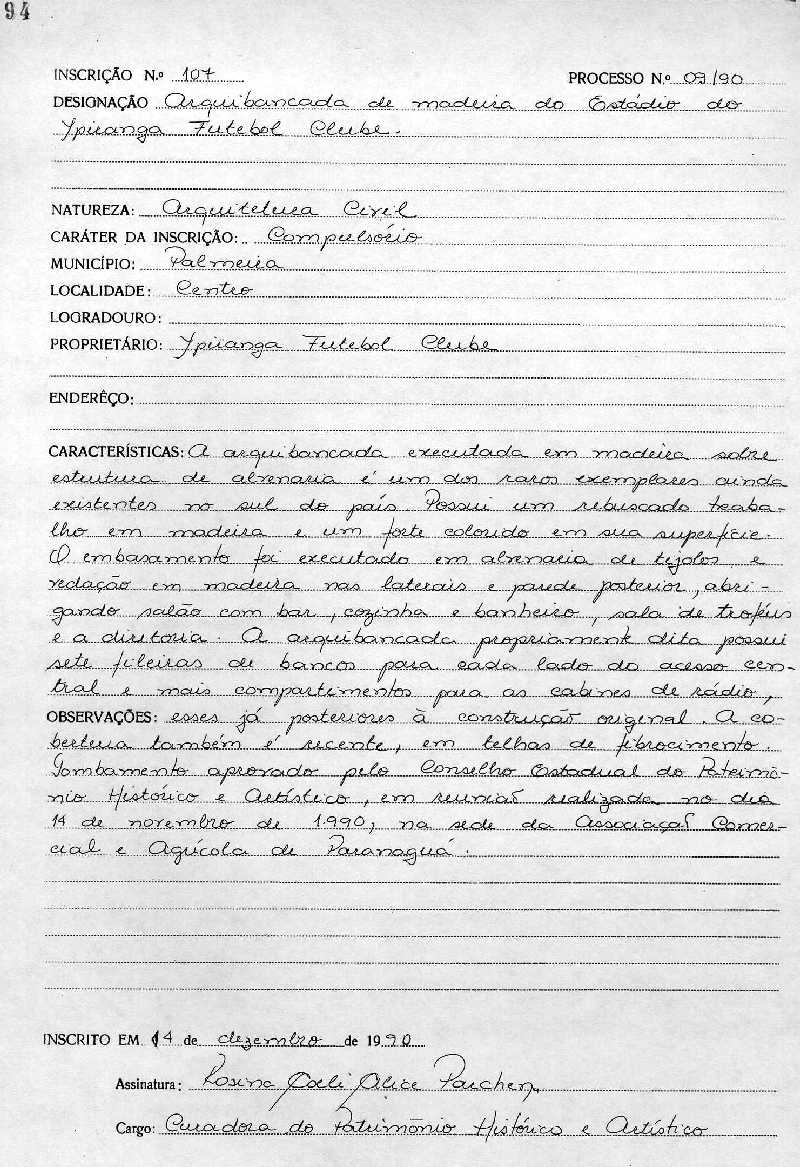 94
INSCRIÇÃO N.º 107 PROCESSO N.º 09/90
DESIGNAÇÃO Arquibancada de madeira do Estádio do
Ypiranga Futebol Clube.
NATUREZA: Arquitetura Civil
CARÁTER DA INSCRIÇÃO: Compulsório
MUNICÍPIO: Palmeira
LOCALIDADE: Centro
LOGRADOURO:
PROPRIETÁRIO: Ypiranga Futebol Clube
ENDERÊÇO:
CARACTERÍSTICAS: A arquibancada executada em madeira sobre
estrutura de alvenaria é um dos raros exemplares ainda
existentes no sul do país Possui um rebuscado traba-
lho em madeira e um forte colorido em sua superfície.
O embasamento foi executado em alvenaria de tijolos e
vedação em madeira nas laterais e parede posterior, abri-
gando salão com bar, cozinha e banheiro, sala de troféus
e a diretoria. A arquibancada propriamente dita possui
sete fileiras de bancos para cada lado do acesso cen-
tral e mais compartimentos para as cabines de rádio,
OBSERVAÇÕES: esses já posteriores à construção original. A co-
bertura também é recente, em telhas de fibrocimento.
Tombamento aprovado pelo Conselho Estadual do Patrimô-
nio Histórico e Artístico, em reunião realizada no dia
14 de novembro de 1.990, na sede da Associação Comer-
cial e Agrícola de Paranaguá.
INSCRITO EM 14 de dezembro de 1990
Assinatura: Rosina Coeli Alice Parchen
Cargo: Curadora do Patrimônio Histórico e Artístico